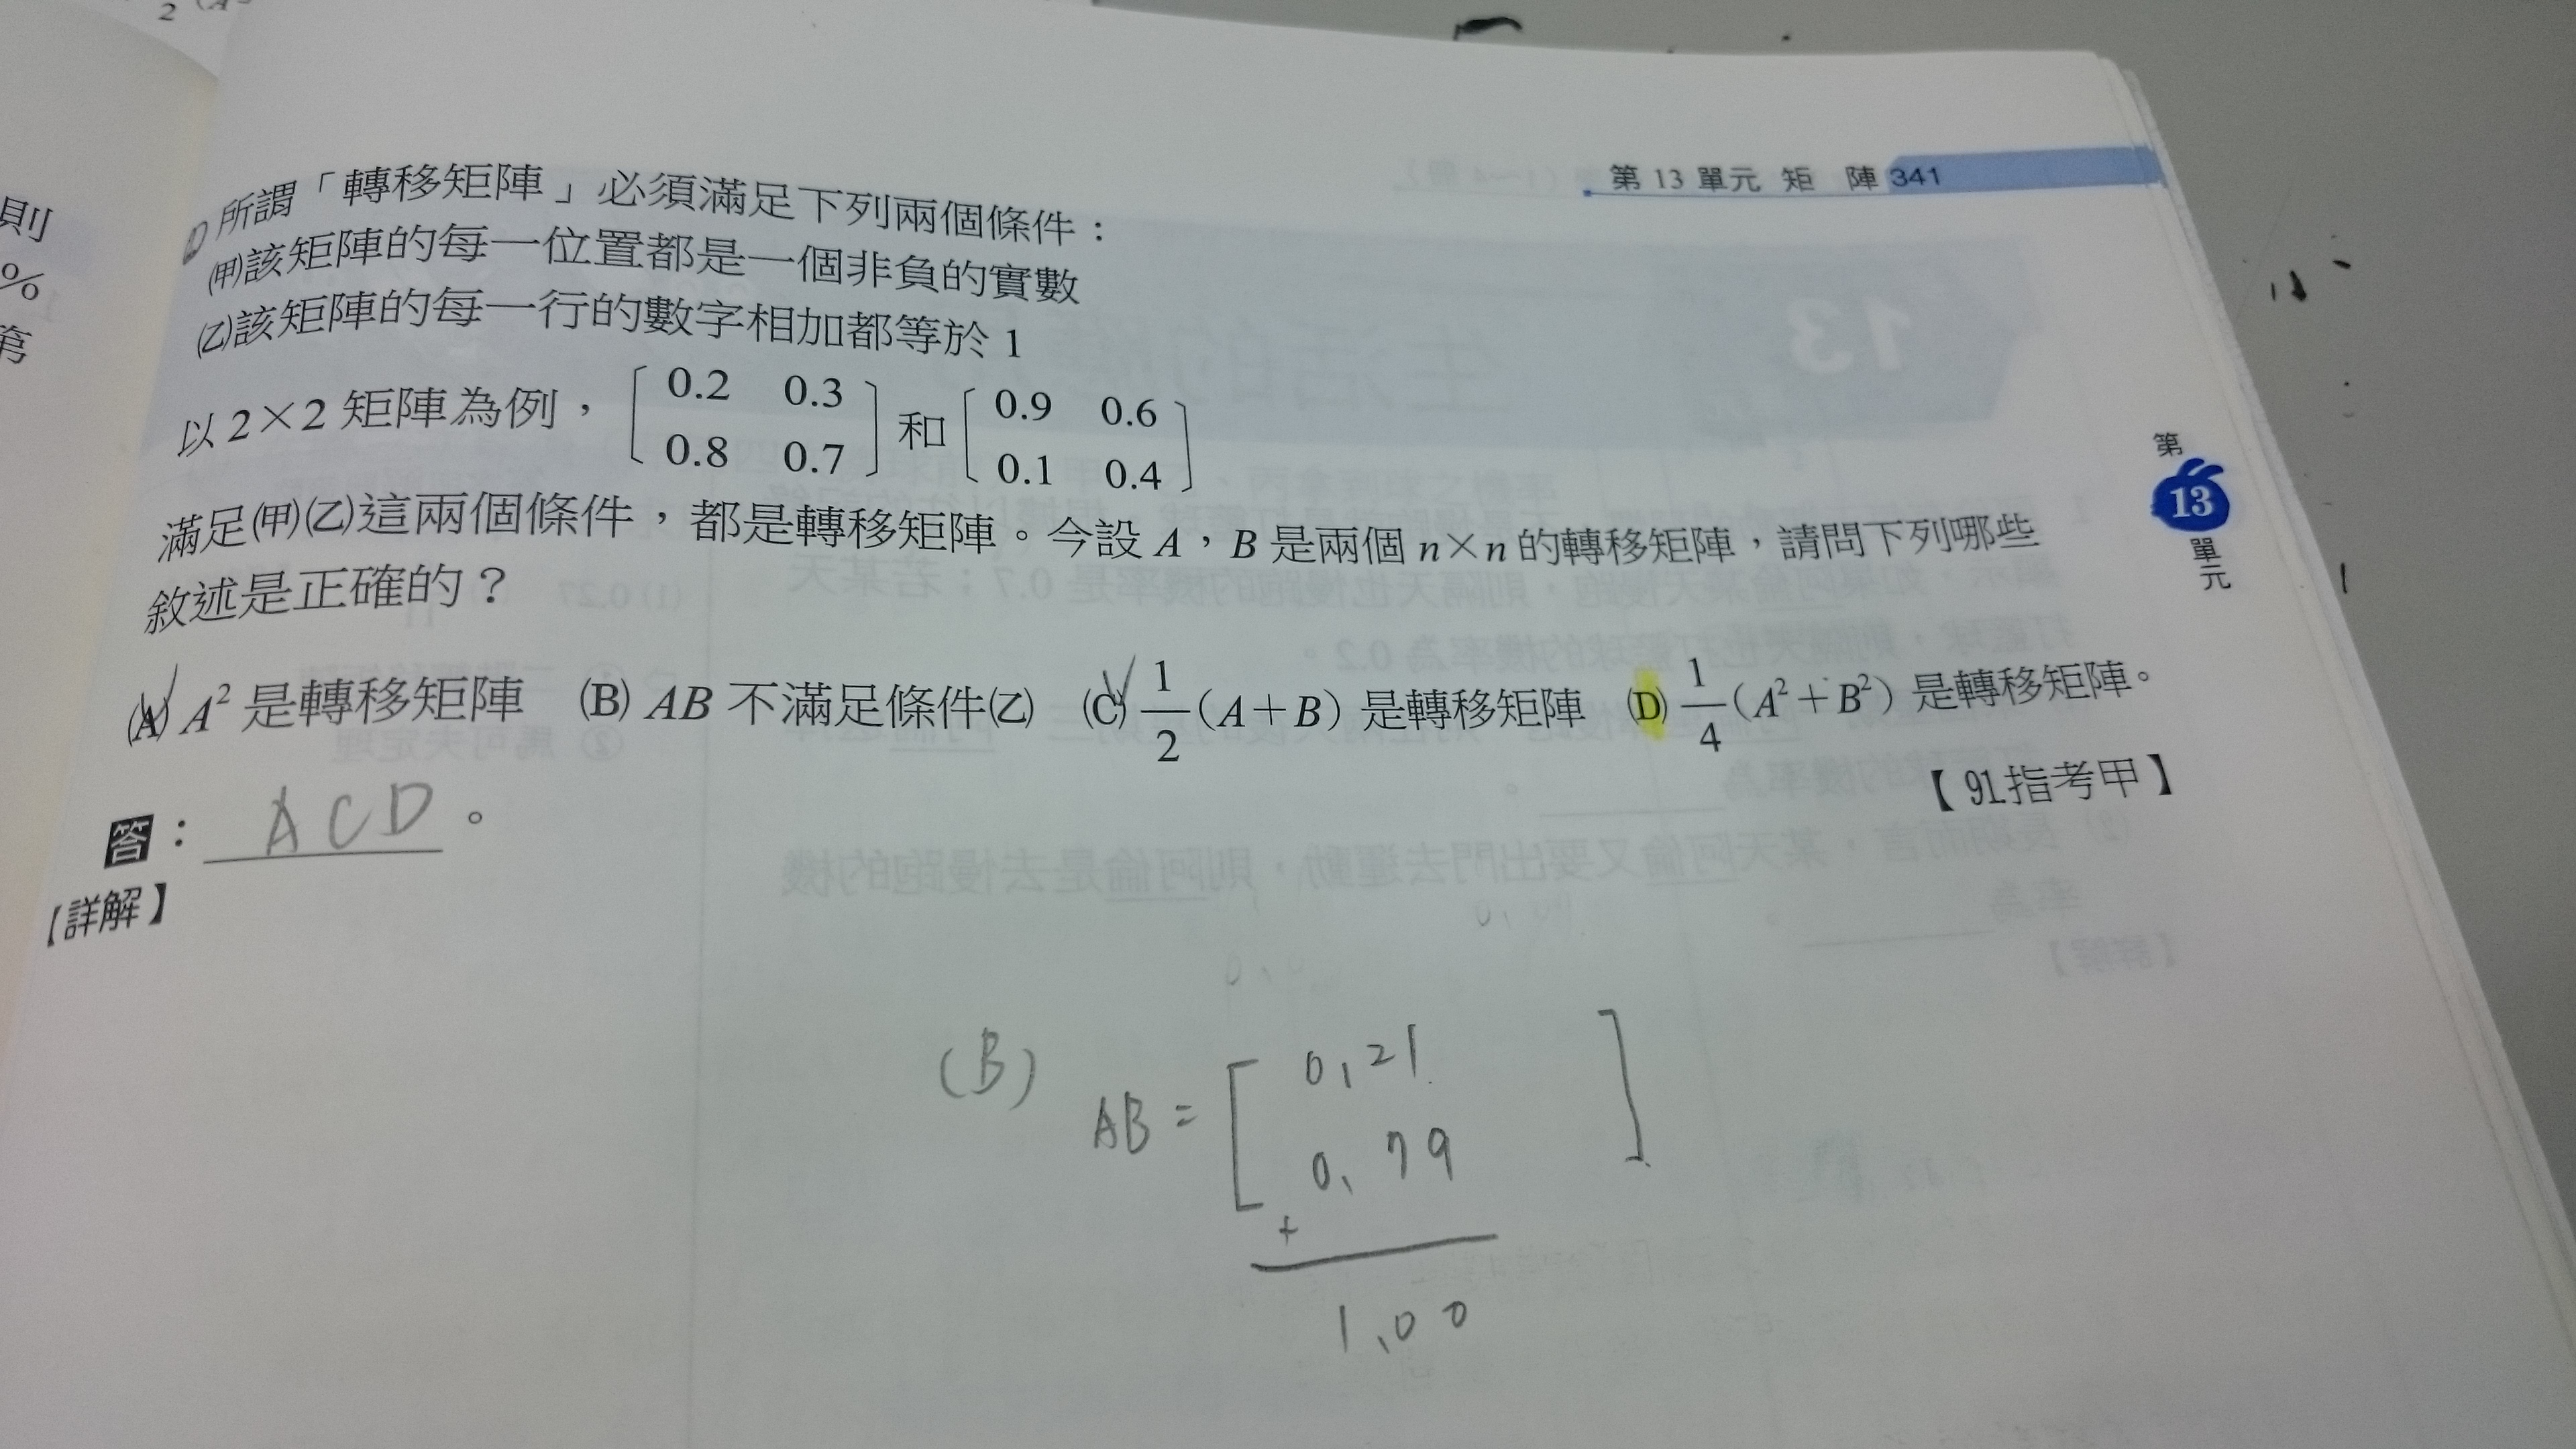 第 13 單元 矩 陣 341
所謂「轉移矩陣」必須滿足下列兩個條件：
(甲)該矩陣的每一位置都是一個非負的實數
(乙)該矩陣的每一行的數字相加都等於 1
以 2×2 矩陣為例，[0.2 0.3 0.8 0.7] 和 [0.9 0.6 0.1 0.4]
滿足(甲)(乙)這兩個條件，都是轉移矩陣。今設 A，B 是兩個 n×n 的轉移矩陣，請問下列哪些
敘述是正確的？
(A) A² 是轉移矩陣 (B) AB 不滿足條件(乙) (C) 1/2 (A＋B) 是轉移矩陣 (D) 1/4 (A²＋B²) 是轉移矩陣。
【91.指考甲】
答： ACD 。
【詳解】
(B) AB = [0.21
0.79]
+
1.00
第
13
單
元
則
%